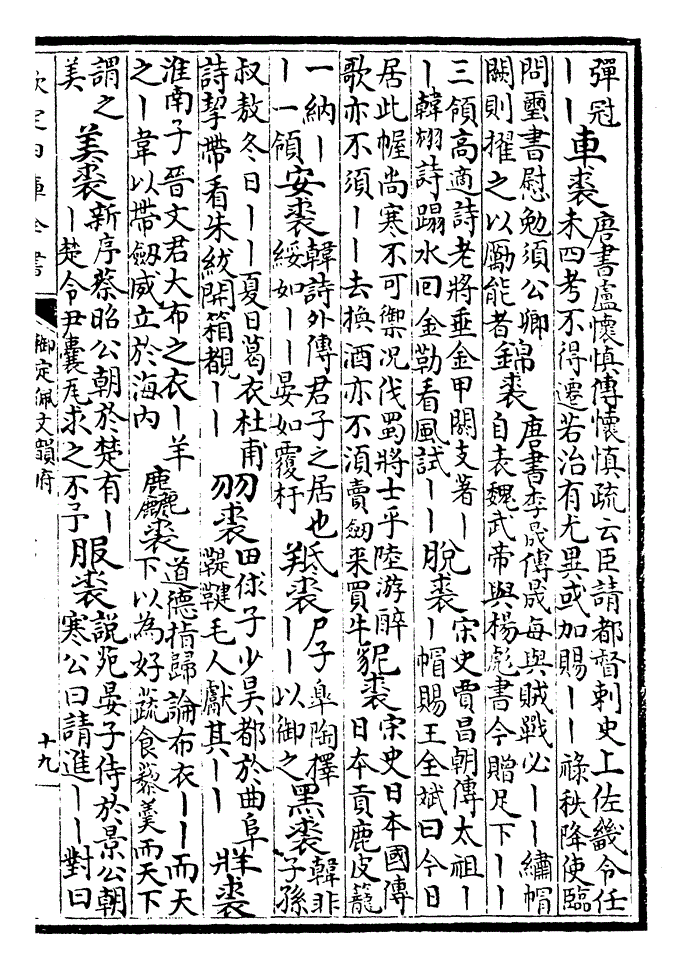 彈冠
丨丨
車裘
唐書盧懷慎傳懷慎疏云臣請都督刺史上佐畿令任
未四考不得遷若治有尤異或加賜丨丨祿秩降使臨
問璽書慰勉須公卿
闕則擢之以勵能者
錦裘
唐書李晟傳晟每與賊戰必丨丨繡帽
自表魏武帝與楊彪書今贈足下丨丨
三領高適詩老將垂金甲閼支著丨
丨韓翃詩蹋水回金勒看風試丨丨
脫裘
宋史賈昌朝傳太祖丨
丨帽賜王全斌曰今日
居此幄尚寒不可禦况伐蜀將士乎陸游醉
歌亦不須丨丨去換酒亦不須賣劒來買牛
裘
宋史日本國傳
日本貢鹿皮籠
一納丨
丨一領
安裘
韓詩外傳君子之居也
綏如丨丨晏如覆杅
羝裘
尸子臯陶擇
丨丨以御之
黑裘
韓非
子孫
叔敖冬日丨丨夏日葛衣杜甫
詩挈帶看朱紱開箱覩丨丨
羽裘
田俅子少昊都於曲阜
鞮鞬毛人獻其丨丨
牂裘
淮南子晉文君大布之衣丨羊
之丨韋以帶劒威立於海内
麤裘
道德指歸論布衣丨丨而天
下以為好蔬食藜羹而天下
謂之
美
美裘
新序蔡昭公朝於楚有丨
丨楚令尹囊瓦求之不予
服裘
說苑晏子侍於景公朝
寒公曰請進丨丨對曰
欽定四庫全書
御定佩文韻府
十九